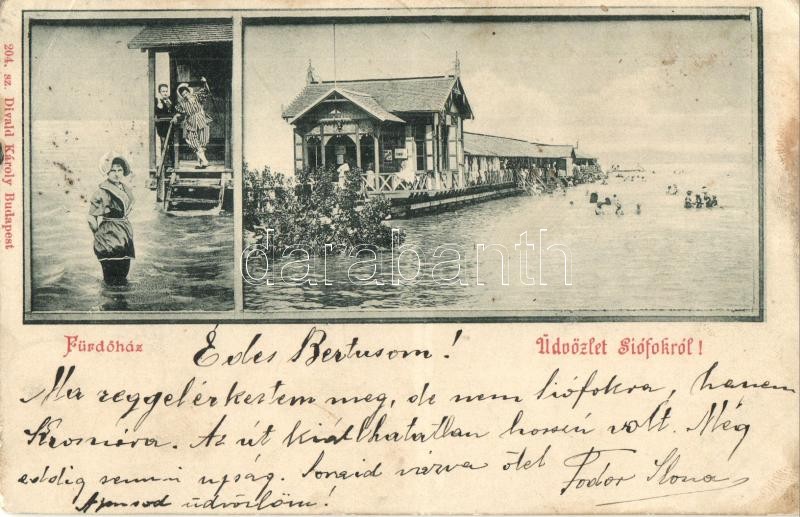 204. sz. Divald Károly Budapest
darabanth
Fürdőház
Üdvözlet Siófokról!
Édes Bertusom!
Ma reggel érkestem meg, de nem Siófokra, hanem
Krosnóra. Az út kiálhatatlan hossú volt. Még
eddig semmi ujság. Soraid várva ölel
Fodor Ilona
üdvözlöm!